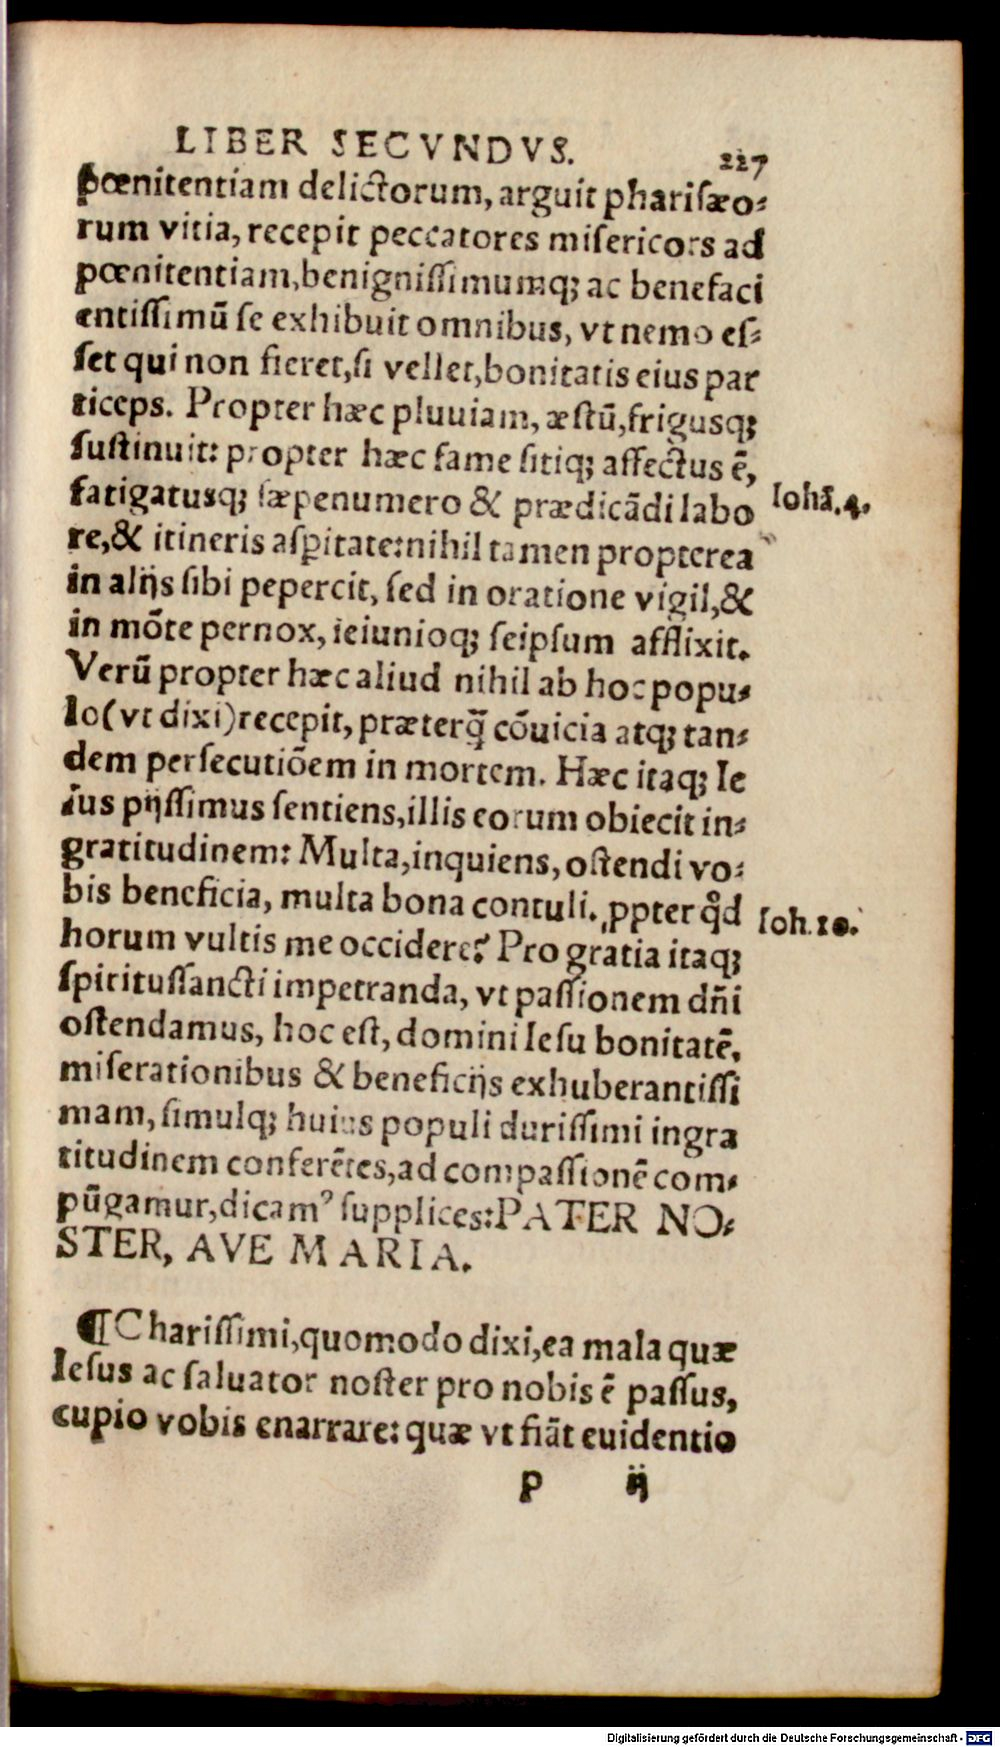 LIBER SECVNDVS. 227
pœnitentiam delictorum, arguit phariſæo-
rum vitia, recepit peccatores miſericors ad
pœnitentiam, benigniſſimumq; ac benefaci
entiſſimū ſe exhibuit omnibus, vt nemo eſ-
ſet qui non fieret, ſi vellet, bonitatis eius par
ticeps. Propter hæc pluuiam, æſtū, frigusq;
ſuſtinuit: propter hæc fame ſitiq; affectus ē,
fatigatusq; ſæpenumero & prædicādi labo
Iohā.4.
re, & itineris aſꝑitate: nihil tamen propterea
in alijs ſibi pepercit, ſed in oratione vigil, &
in mōte pernox, ieiunioq; ſeipſum afflixit.
Verū propter hæc aliud nihil ab hoc popu-
lo (vt dixi) recepit, præterq̄ cōuicia atq; tan-
dem perſecutiōem in mortem. Hæc itaq; Ie
ſus pijſſimus ſentiens, illis eorum obiecit in-
gratitudinem: Multa, inquiens, oſtendi vo-
bis beneficia, multa bona contuli. ꝓpter qd̕
Ioh.10.
horum vultis me occidere? Pro gratia itaq;
ſpirituſſancti impetranda, vt paſſionem dn̄i
oſtendamus, hoc eſt, domini Ieſu bonitatē,
miſerationibus & beneficijs exhuberantiſſi
mam, ſimulq; huius populi duriſſimi ingra
titudinem conferētes, ad compaſſionē com-
pūgamur, dicamꝰ ſupplices: PATER NO-
STER, AVE MARIA.
¶ Chariſſimi, quomodo dixi, ea mala quæ
Ieſus ac ſaluator noſter pro nobis ē paſſus,
cupio vobis enarrare: quæ vt fiāt euidentio
p ij
Digitalisierung gefördert durch die Deutsche Forschungsgemeinschaft - DFG